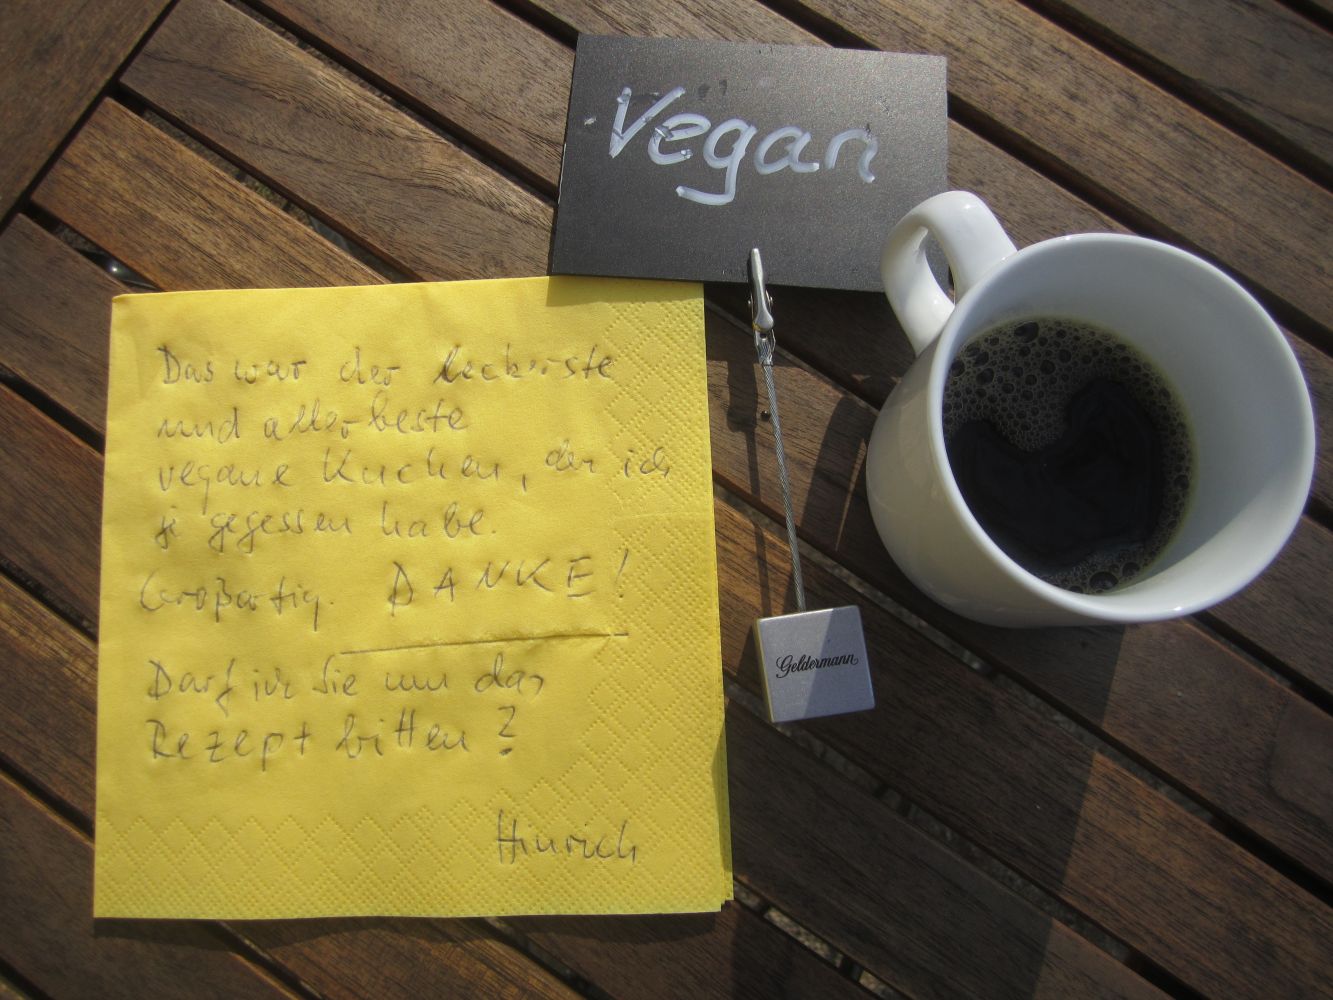 Vegan
Das war der leckerste
und allerbeste
vegane Kuchen, der ich
je gegessen habe.
Großartig. DANKE!
Darf ich Sie um das
Rezept bitten?
Hinrich
Geldermann